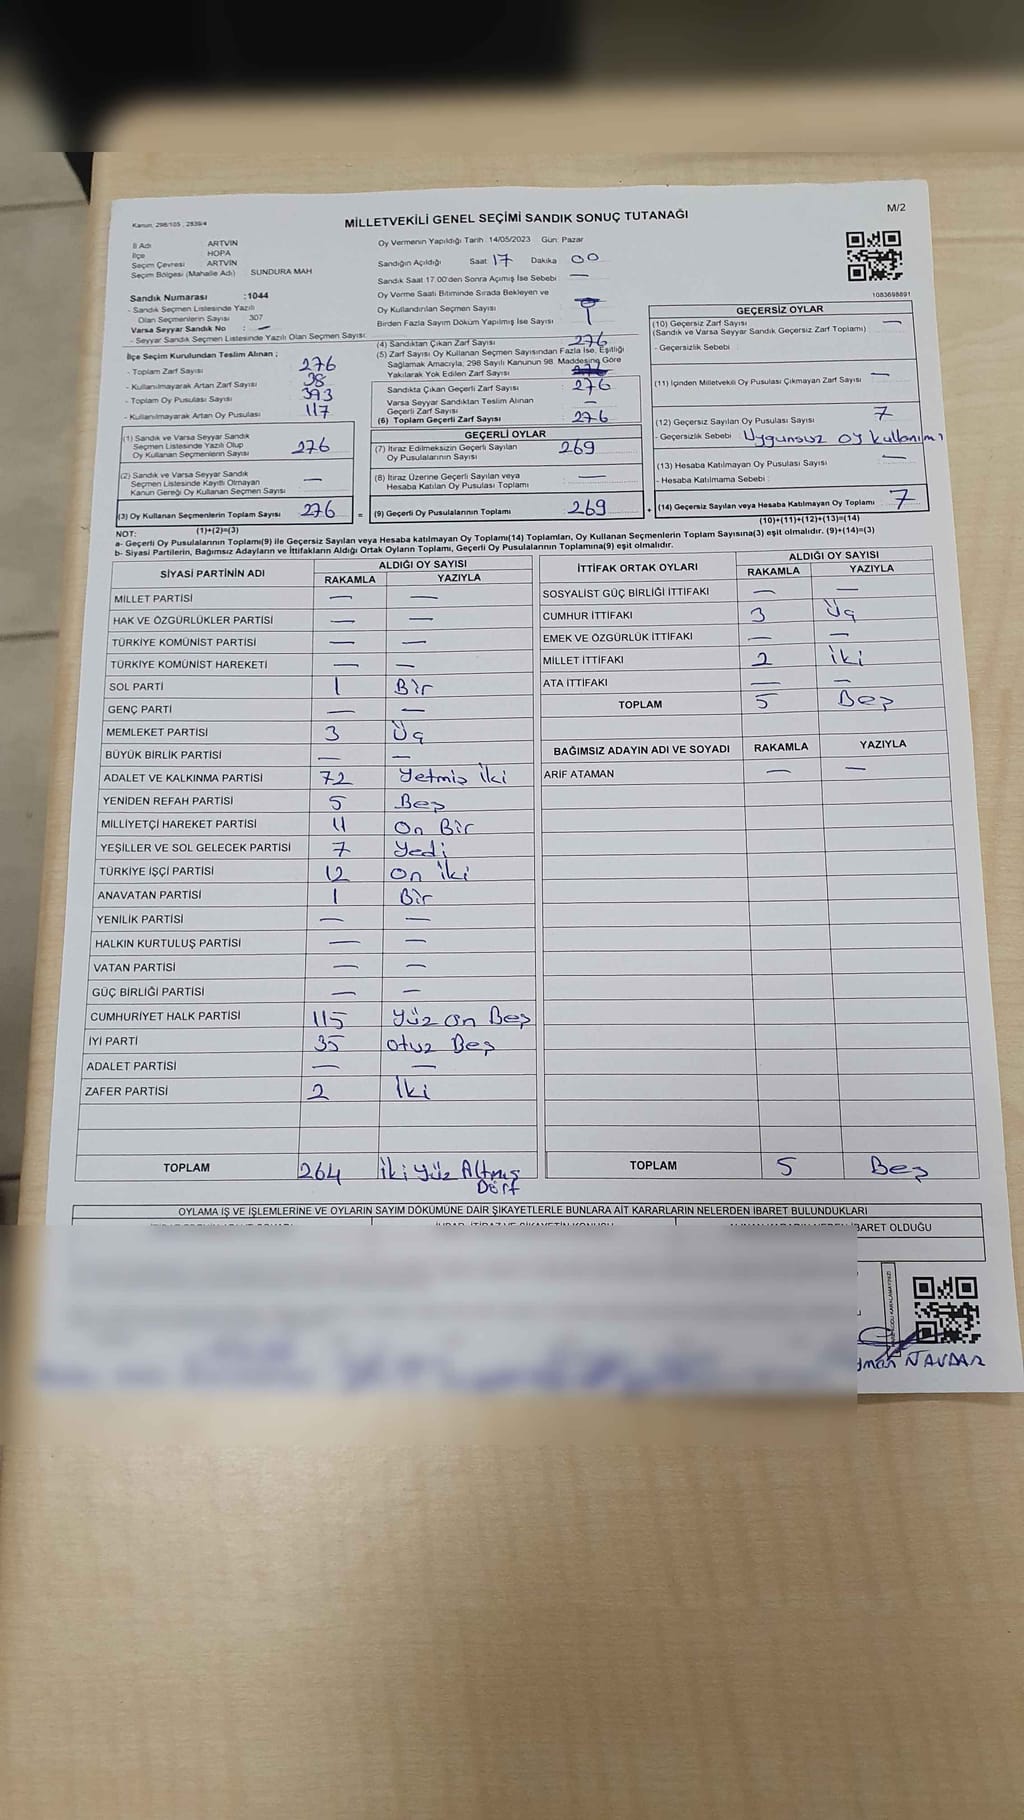 Kanun: 298/105 , 2839/4
MİLLETVEKİLİ GENEL SEÇİMİ SANDIK SONUÇ TUTANAĞI
M/2
İl Adı ARTVİN
İlçe HOPA
Seçim Çevresi ARTVİN
Seçim Bölgesi (Mahalle Adı) : SUNDURA MAH
Oy Vermenin Yapıldığı Tarih :14/05/2023 Gün: Pazar
Sandığın Açıldığı Saat 17 Dakika 00
Sandık Saat 17.00'den Sonra Açımış İse Sebebi : —
Oy Verme Saati Bitiminde Sırada Bekleyen ve
Oy Kullandırılan Seçmen Sayısı
Birden Fazla Sayım Döküm Yapılmış İse Sayısı
Sandık Numarası :1044
- Sandık Seçmen Listesinde Yazılı
Olan Seçmenlerin Sayısı 307
Varsa Seyyar Sandık No : —
- Seyyar Sandık Seçmen Listesinde Yazılı Olan Seçmen Sayısı:
İlçe Seçim Kurulundan Teslim Alınan ;
- Toplam Zarf Sayısı 276
- Kullanılmayarak Artan Zarf Sayısı 38
- Toplam Oy Pusulası Sayısı 393
- Kullanılmayarak Artan Oy Pusulası 117
(1) Sandık ve Varsa Seyyar Sandık
Seçmen Listesinde Yazılı Olup
Oy Kullanan Seçmenlerin Sayısı 276
(2) Sandık ve Varsa Seyyar Sandık
Seçmen Listesinde Kayıtlı Olmayan
Kanun Gereği Oy Kullanan Seçmen Sayısı —
(3) Oy Kullanan Seçmenlerin Toplam Sayısı 276 =
(1)+(2)=(3)
(4) Sandıktan Çıkan Zarf Sayısı 276
(5) Zarf Sayısı Oy Kullanan Seçmen Sayısından Fazla İse, Eşitliği
Sağlamak Amacıyla, 298 Sayılı Kanunun 98. Maddesine Göre
Yakılarak Yok Edilen Zarf Sayısı
Sandıkta Çıkan Geçerli Zarf Sayısı : 276
Varsa Seyyar Sandıktan Teslim Alınan
Geçerli Zarf Sayısı —
(6) Toplam Geçerli Zarf Sayısı : 276
GEÇERLİ OYLAR
(7) İtiraz Edilmeksizin Geçerli Sayılan
Oy Pusulalarının Sayısı 269
(8) İtiraz Üzerine Geçerli Sayılan veya
Hesaba Katılan Oy Pusulası Toplamı —
(9) Geçerli Oy Pusulalarının Toplamı 269 +
1083698891
GEÇERSİZ OYLAR
(10) Geçersiz Zarf Sayısı —
(Sandık ve Varsa Seyyar Sandık Geçersiz Zarf Toplamı)
- Geçersizlik Sebebi
(11) İçinden Milletvekili Oy Pusulası Çıkmayan Zarf Sayısı —
(12) Geçersiz Sayılan Oy Pusulası Sayısı 7
- Geçersizlik Sebebi : Uygunsuz oy kullanımı
(13) Hesaba Katılmayan Oy Pusulası Sayısı —
- Hesaba Katılmama Sebebi :
(14) Geçersiz Sayılan veya Hesaba Katılmayan Oy Toplamı 7
(10)+(11)+(12)+(13)=(14)
NOT:
a- Geçerli Oy Pusulalarının Toplamı(9) ile Geçersiz Sayılan veya Hesaba katılmayan Oy Toplamı(14) Toplamları, Oy Kullanan Seçmenlerin Toplam Sayısına(3) eşit olmalıdır. (9)+(14)=(3)
b- Siyasi Partilerin, Bağımsız Adayların ve İttifakların Aldığı Ortak Oyların Toplamı, Geçerli Oy Pusulalarının Toplamına(9) eşit olmalıdır.
SİYASİ PARTİNİN ADI ALDIĞI OY SAYISI
RAKAMLA YAZIYLA
MİLLET PARTİSİ — —
HAK VE ÖZGÜRLÜKLER PARTİSİ — —
TÜRKİYE KOMÜNİST PARTİSİ — —
TÜRKİYE KOMÜNİST HAREKETİ — —
SOL PARTİ 1 Bir
GENÇ PARTİ — —
MEMLEKET PARTİSİ 3 Üç
BÜYÜK BİRLİK PARTİSİ — —
ADALET VE KALKINMA PARTİSİ 72 Yetmiş İki
YENİDEN REFAH PARTİSİ 5 Beş
MİLLİYETÇİ HAREKET PARTİSİ 11 On Bir
YEŞİLLER VE SOL GELECEK PARTİSİ 7 Yedi
TÜRKİYE İŞÇİ PARTİSİ 12 On iki
ANAVATAN PARTİSİ 1 Bir
YENİLİK PARTİSİ — —
HALKIN KURTULUŞ PARTİSİ — —
VATAN PARTİSİ — —
GÜÇ BİRLİĞİ PARTİSİ — —
CUMHURİYET HALK PARTİSİ 115 Yüz on Beş
İYİ PARTİ 35 Otuz Beş
ADALET PARTİSİ — —
ZAFER PARTİSİ 2 İki
TOPLAM 264 İki Yüz Altmış
Dört
İTTİFAK ORTAK OYLARI ALDIĞI OY SAYISI
RAKAMLA YAZIYLA
SOSYALİST GÜÇ BİRLİĞİ İTTİFAKI — —
CUMHUR İTTİFAKI 3 Üç
EMEK VE ÖZGÜRLÜK İTTİFAKI — —
MİLLET İTTİFAKI 2 İki
ATA İTTİFAKI — —
TOPLAM 5 Beş
BAĞIMSIZ ADAYIN ADI VE SOYADI RAKAMLA YAZIYLA
ARİF ATAMAN — —
TOPLAM 5 Beş
OYLAMA İŞ VE İŞLEMLERİNE VE OYLARIN SAYIM DÖKÜMÜNE DAİR ŞİKAYETLERLE BUNLARA AİT KARARLARIN NELERDEN İBARET BULUNDUKLARI
İBARET OLDUĞU
NAVDAR